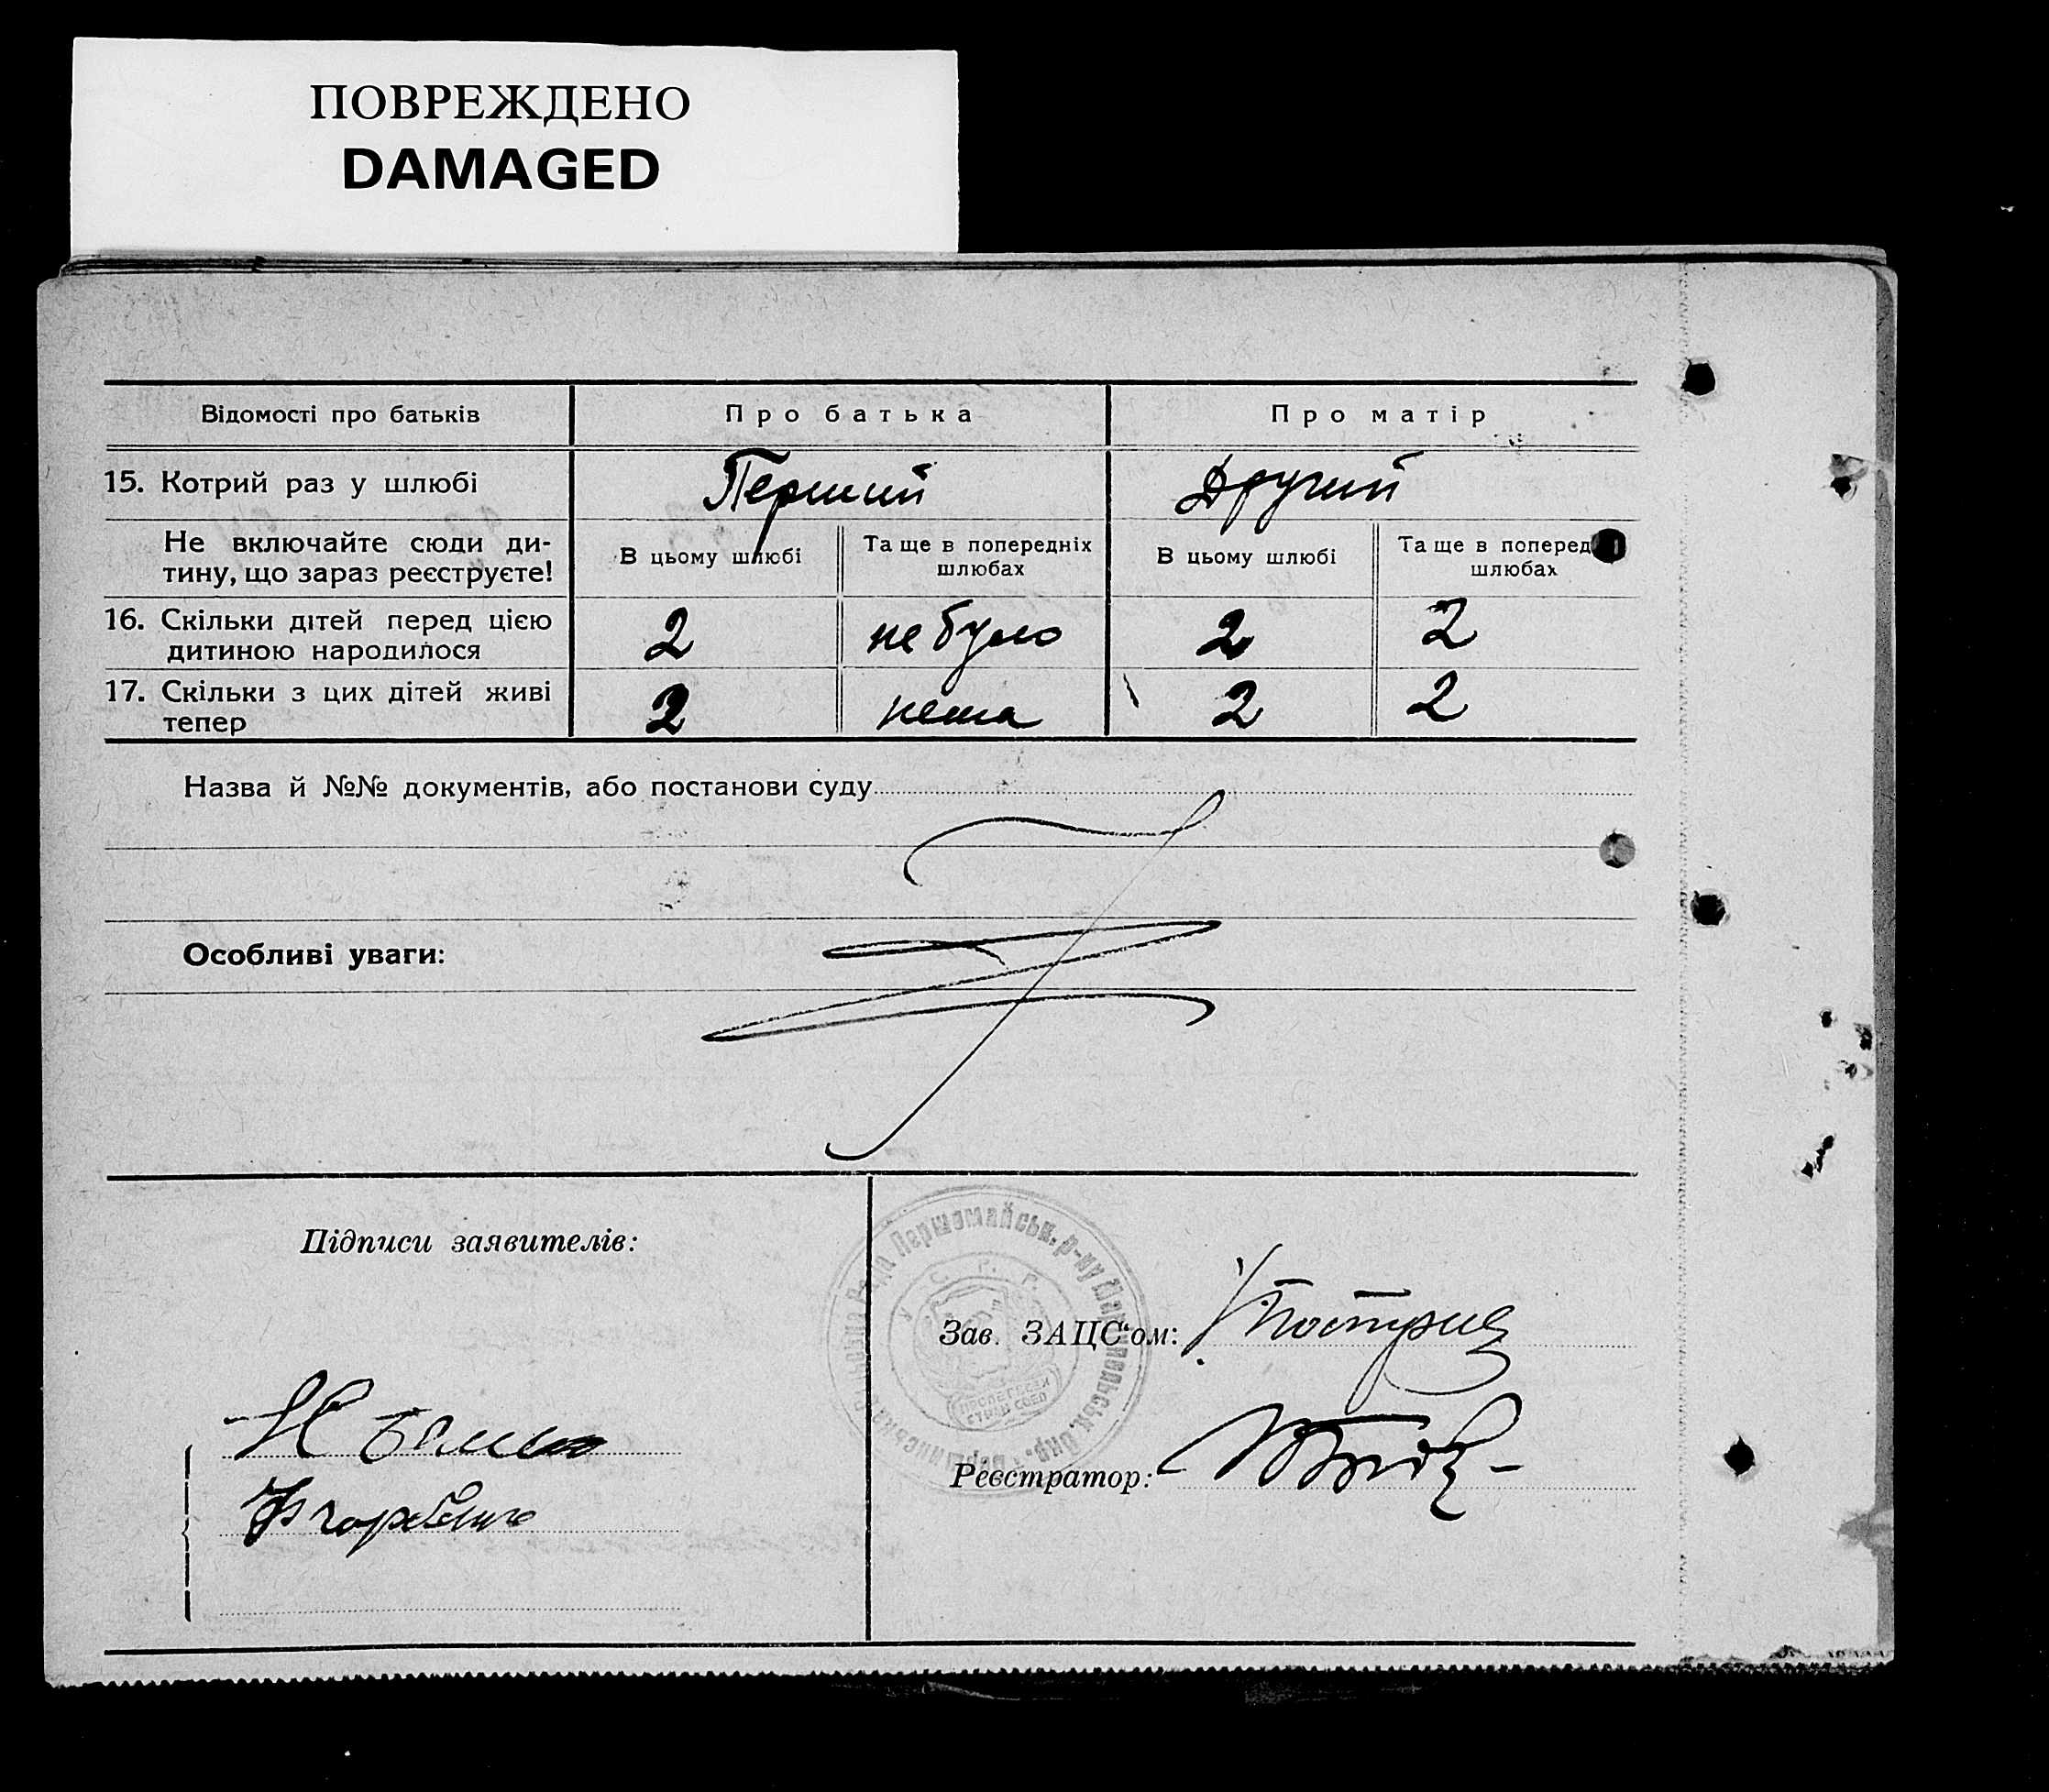 ПОВРЕЖДЕНО
DAMAGED
Відомості про батьків
Про батька
Про матір
15. Котрий раз у шлюбі
Перший
Другий
Не включайте сюди ди-
тину, що зараз реєструєте!
В цьому шлюбі
Та ще в попередніх
шлюбах
В цьому шлюбі
Та ще в поперед
шлюбах
16. Скільки дітей перед цією
дитиною народилося
2
не було
2
2
17. Скільки з цих дітей живі
тепер
2
нема
2
2
Назва й №№ документів, або постанови суду
Особливі уваги:
Підписи заявителів:
Першомайськ. р-ну Маріупольськ. Окр.
У С Р Р
Зав. ЗАЦС‘ом:
Реєстратор: